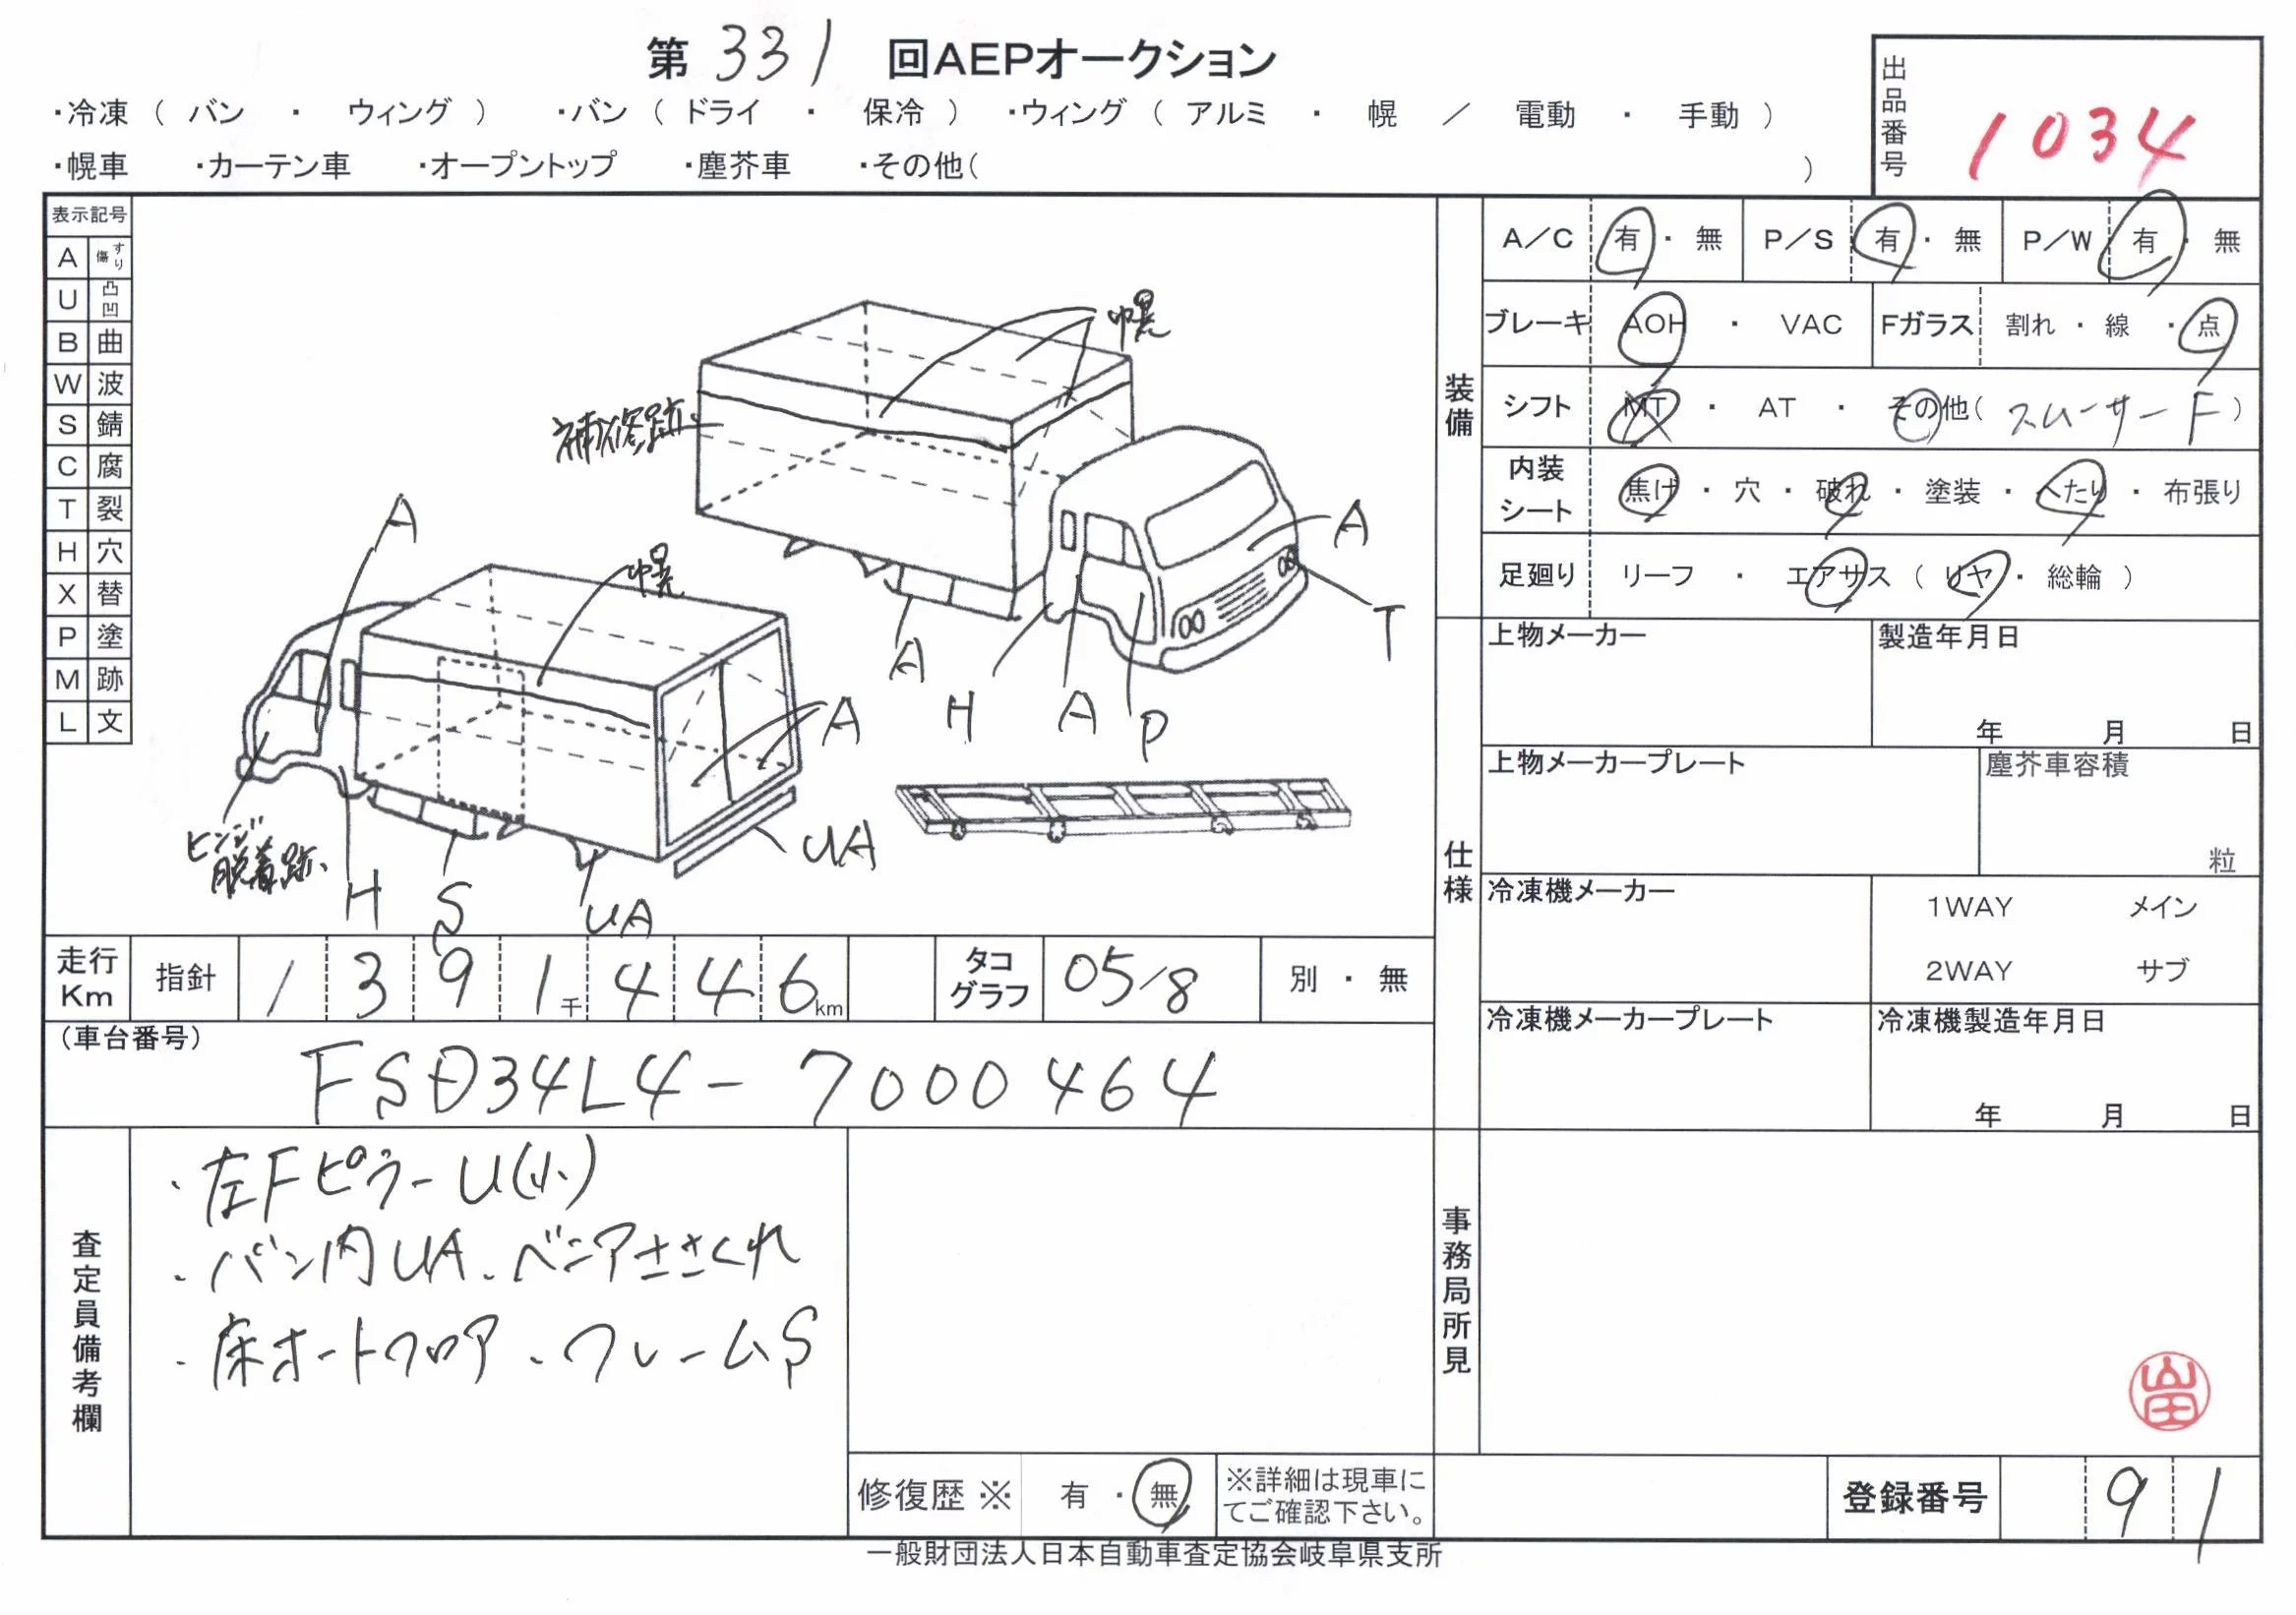 第 331 回AEPオークション
・冷凍 ( バン ・ ウィング ) ・バン ( ドライ ・ 保冷 ) ・ウィング ( アルミ ・ 幌 / 電動 ・ 手動 )
・幌車 ・カーテン車 ・オープントップ ・塵芥車 ・その他( )
出品番号
1034
表示記号
A すり傷
U 凸凹
B 曲
W 波
S 錆
C 腐
T 裂
H 穴
X 替
P 塗
M 跡
L 文
幌
補修跡
A
A
幌
T
A
H
A
P
A
UA
ヒンジ
脱着跡
H
S
UA
装備
A/C 有 ・ 無 P/S 有 ・ 無 P/W 有 ・ 無
ブレーキ AOH ・ VAC Fガラス 割れ ・ 線 ・ 点
シフト MT ・ AT ・ その他( スムーサーF )
内装シート 焦げ ・ 穴 ・ 破れ ・ 塗装 ・ へたり ・ 布張り
足廻り リーフ ・ エアサス ( リヤ ・ 総輪 )
仕様
上物メーカー 製造年月日
年 月 日
上物メーカープレート 塵芥車容積
粒
冷凍機メーカー 1WAY メイン
2WAY サブ
冷凍機メーカープレート 冷凍機製造年月日
年 月 日
走行Km 指針 1 3 9 1千 4 4 6km タコグラフ 05/8 別 ・ 無
(車台番号)
FSD34L4-7000464
査定員備考欄
・左Fピラー U(小)
・バン内UA、ベニアささくれ
・床オートフロア、フレームS
修復歴 ※ 有 ・ 無 ※詳細は現車にてご確認下さい。
事務局所見
登録番号 91
一般財団法人日本自動車査定協会岐阜県支所